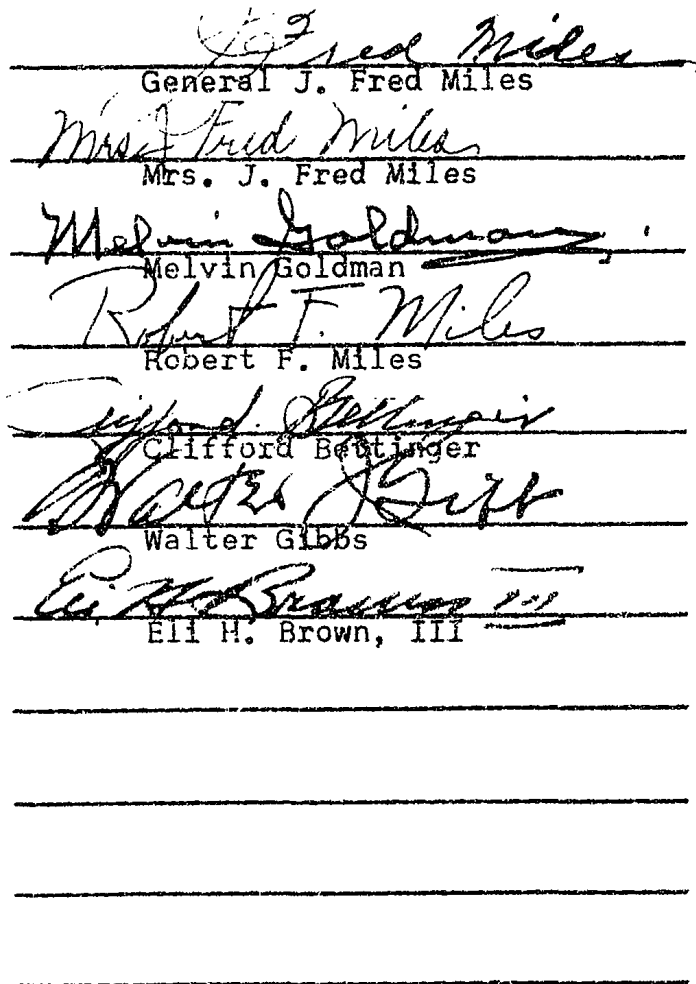 J. Fred Miles
General J. Fred Miles
Mrs. J. Fred Miles
Mrs. J. Fred Miles
Melvin Goldman
Melvin Goldman
Robert F. Miles
Robert F. Miles
Clifford Bettinger
Clifford Bettinger
Walter J Gibbs
Walter Gibbs
Eli H. Brown III
Eli H. Brown, III